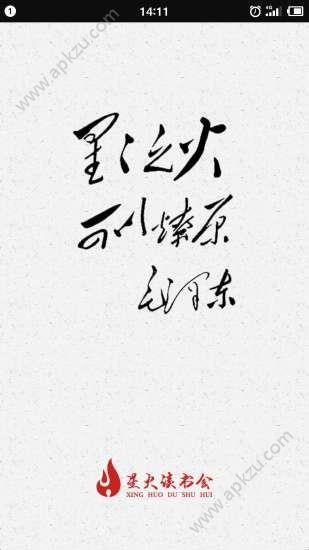 1
14:11
4G
www.apkzu.com
星々之火
可以燎原
毛泽东
星火读书会
XING HUO DU SHU HUI
www.apkzu.com